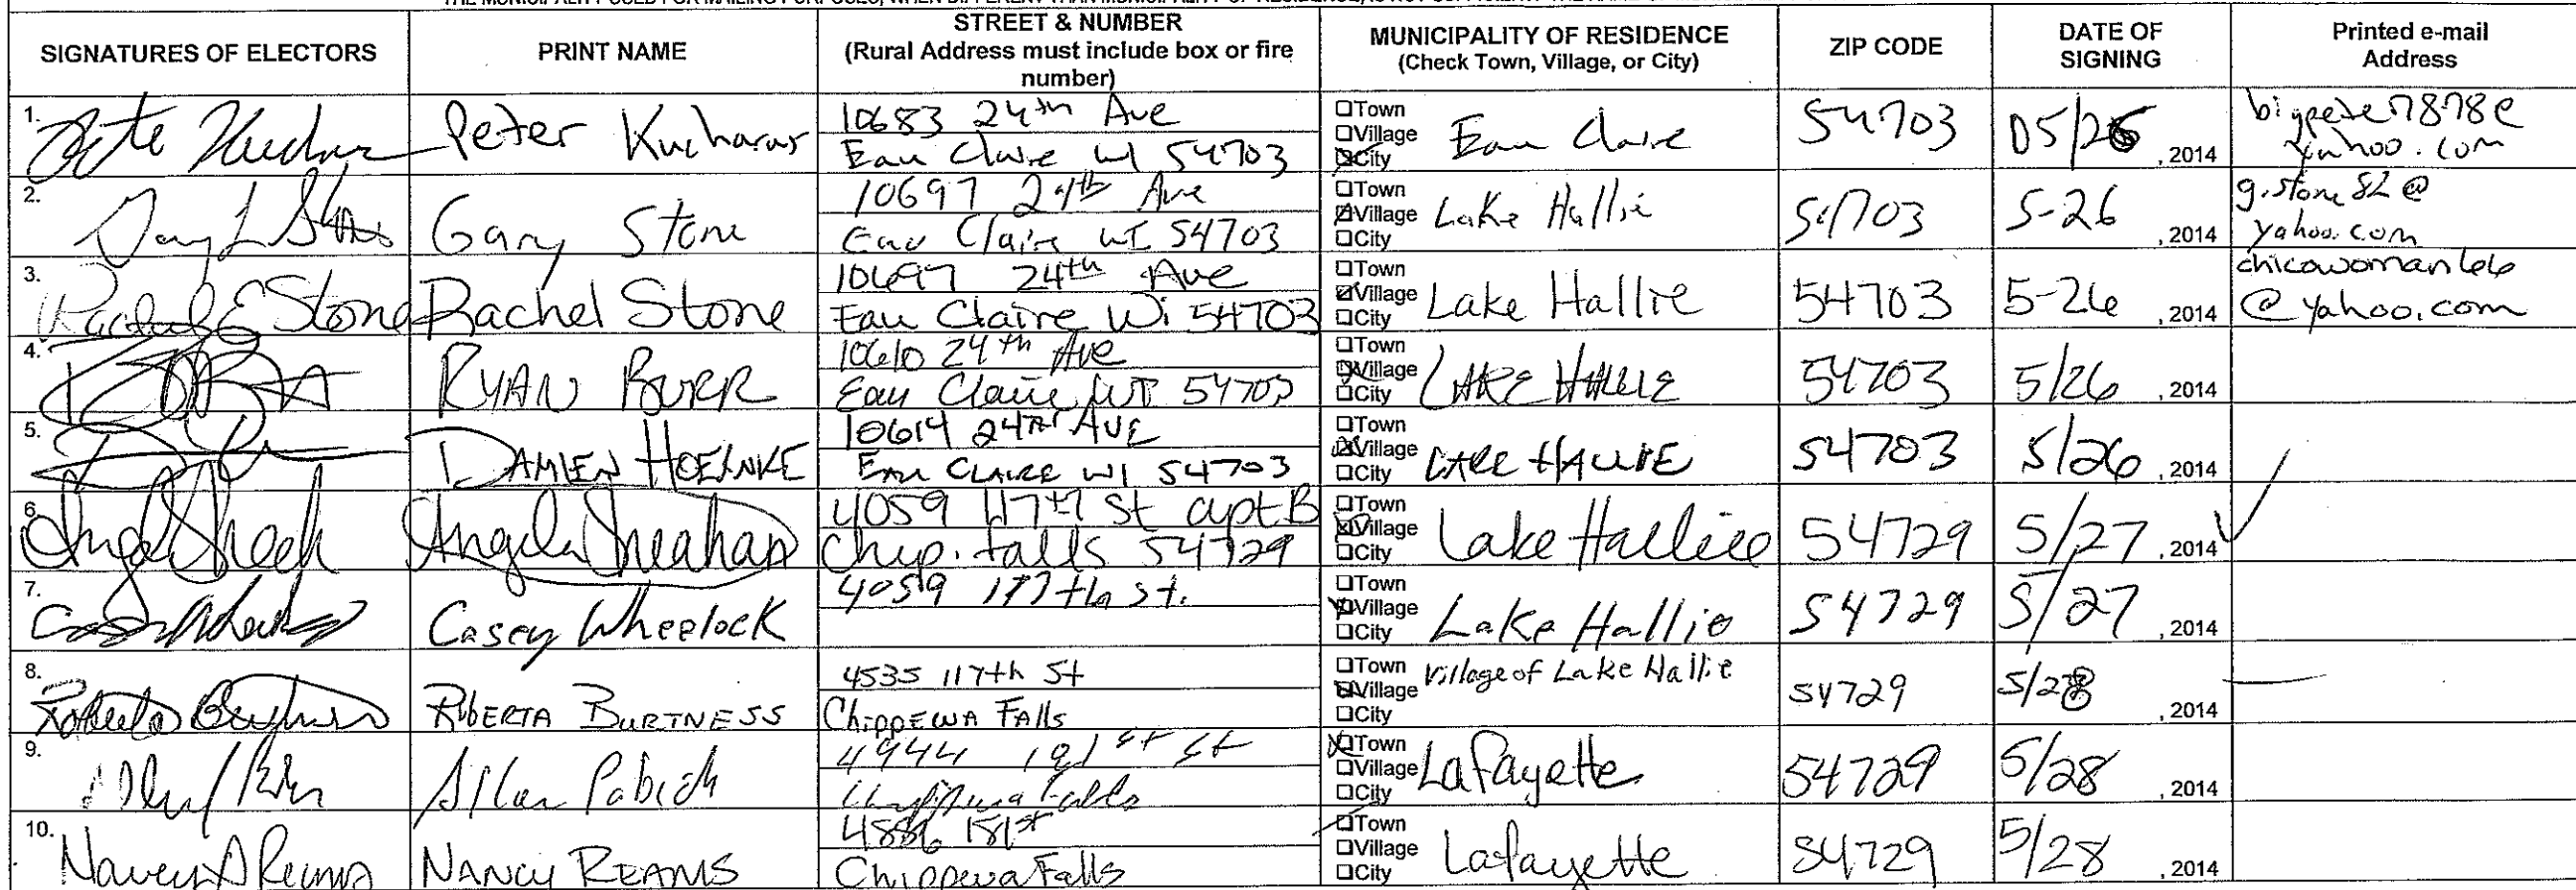 SIGNATURES OF ELECTORS
PRINT NAME
STREET & NUMBER
(Rural Address must include box or fire
number)
MUNICIPALITY OF RESIDENCE
(Check Town, Village, or City)
ZIP CODE
DATE OF
SIGNING
Printed e-mail
Address
1.
Peter
10683 24th Ave
Eau Claire WI 54703
☐Town
☐Village
☒City
Eau Claire
54703
05/26, 2014
yahoo.com
2.
Gary Stone
10697 24th Ave
Eau Claire WI 54703
☐Town
☒Village
☐City
Lake Hallie
54703
5-26, 2014
g.stone82@
yahoo.com
3.
Rachel E Stone
Rachel Stone
10697 24th Ave
Eau Claire Wi 54703
☐Town
☒Village
☐City
Lake Hallie
54703
5-26, 2014
chicowoman66
@yahoo.com
4.
RYAN BURR
10610 24th Ave
Eau Claire WI 54703
☐Town
☒Village
☐City
LAKE HALLIE
54703
5/26, 2014
5.
DAMIEN HOERNKE
10614 24TH AVE
EAU CLAIRE WI 54703
☐Town
☒Village
☐City
LAKE HALLIE
54703
5/26, 2014
6.
Angela Sheahan
4059 117th St apt B
Chip. Falls 54729
☐Town
☒Village
☐City
Lake Hallie
54729
5/27, 2014
7.
Casey Wheelock
4059 117th st.
☐Town
☒Village
☐City
Lake Hallie
54729
5/27, 2014
8.
Roberta Burtness
ROBERTA BURTNESS
4535 117th St
CHIPPEWA FALLS
☐Town
☒Village
☐City
Village of Lake Hallie
54729
5/28, 2014
9.
Allan Pabich
4944 181st St
Chippewa Falls
☒Town
☐Village
☐City
Lafayette
54729
5/28, 2014
10.
NANCY REAMS
4886 181st
Chippewa Falls
☐Town
☐Village
☐City
Lafayette
54729
5/28, 2014